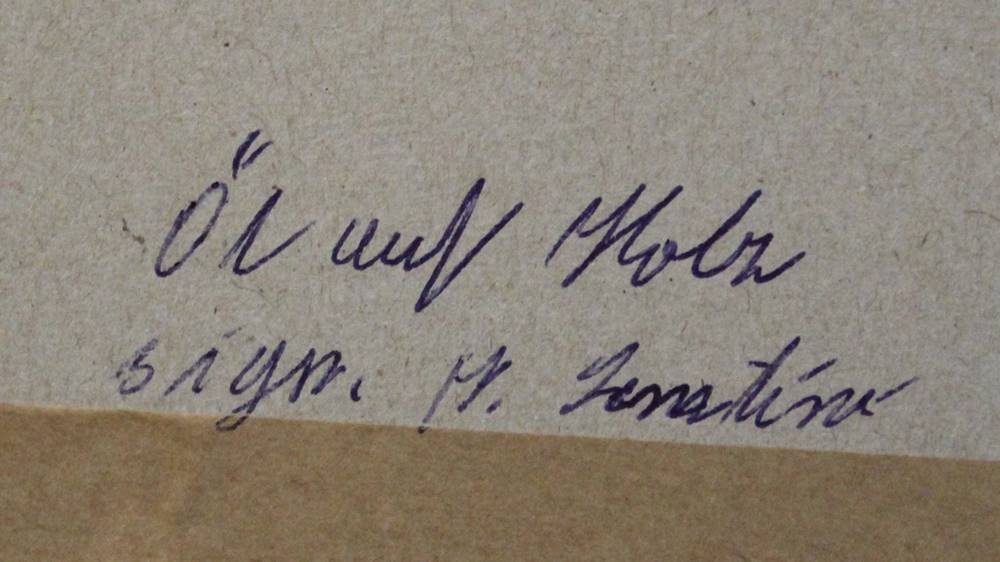 Öl auf Holz
sign.